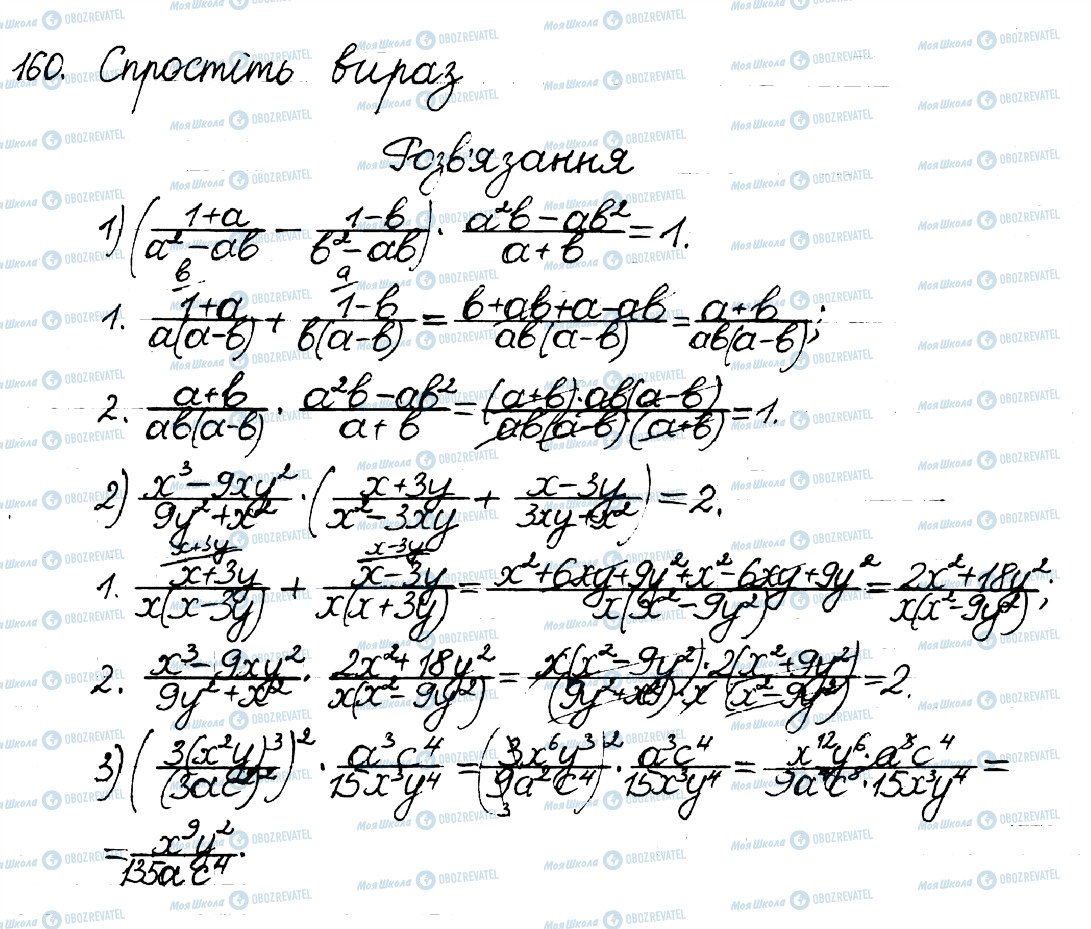 160. Спростіть вираз
Розв'язання
1) ((1+a)/(a²-ab) - (1-b)/(b²-ab)) · (a²b-ab²)/(a+b) = 1.
1. (1+a)/(a(a-b)) + (1-b)/(b(a-b)) = (b+ab+a-ab)/(ab(a-b)) = (a+b)/(ab(a-b));
2. (a+b)/(ab(a-b)) · (a²b-ab²)/(a+b) = ((a+b)·ab(a-b))/(ab(a-b)(a+b)) = 1.
2) (x³-9xy²)/(9y²+x²) · ((x+3y)/(x²-3xy) + (x-3y)/(3xy+x²)) = 2.
1. (x+3y)/(x(x-3y)) + (x-3y)/(x(x+3y)) = (x²+6xy+9y²+x²-6xy+9y²)/(x(x²-9y²)) = (2x²+18y²)/(x(x²-9y²));
2. (x³-9xy²)/(9y²+x²) · (2x²+18y²)/(x(x²-9y²)) = (x(x²-9y²)·2(x²+9y²))/((9y²+x²)·x(x²-9y²)) = 2.
3) (3(x²y)³/(3ac²)²)² · (a³c⁴)/(15x³y⁴) = (3x⁶y³/(9a²c⁴))² · (a³c⁴)/(15x³y⁴) = (x¹²y⁶·a³c⁴)/(9a⁴c⁸·15x³y⁴) =
= (x⁹y²)/(135ac⁴).